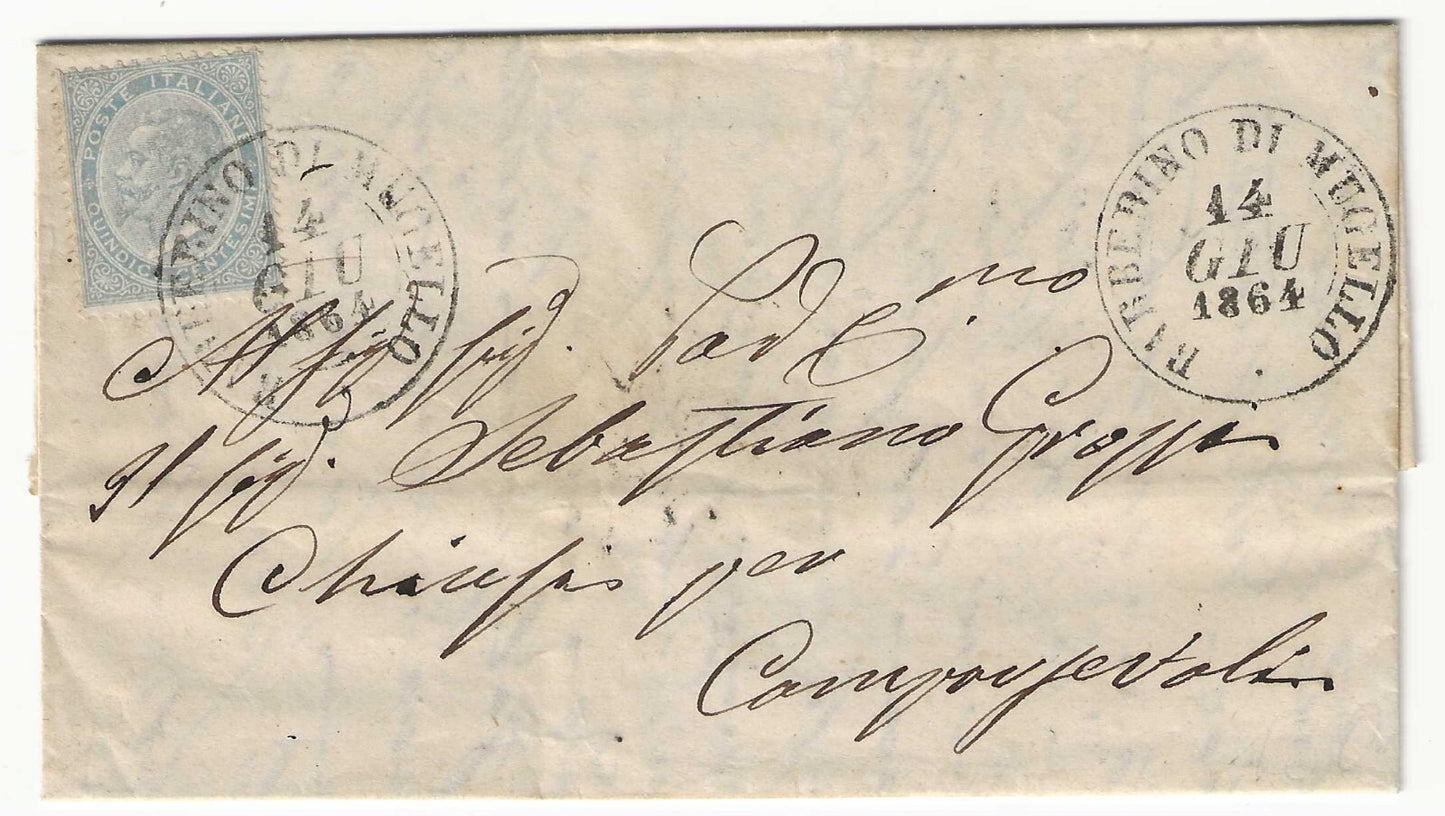 POSTE ITALIANE
QUINDICI CENTESIMI
BARBERINO DI MUGELLO
14
GIU
1864
BARBERINO DI MUGELLO
14
GIU
1864
All
Sig. Pad.e C.mo
Il Sig. Sebastiano Grossi
Chiusi per
Camporsevoli